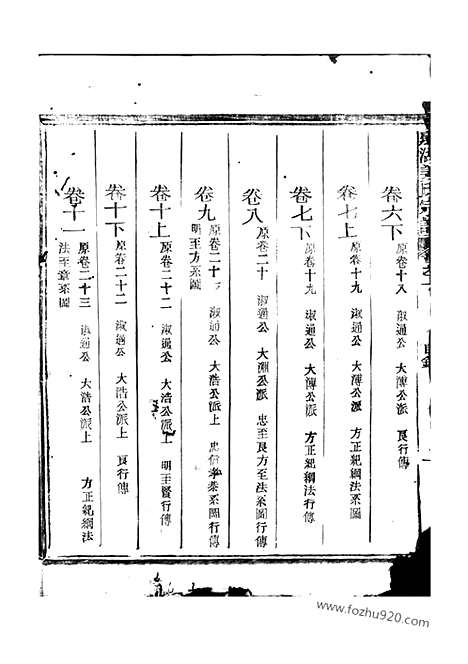 卷六下 原卷十八 淑通公 大溥公派 良行傳
卷七上 原卷十九 淑通公 大溥公派 方正紀綱法系圖
卷七下 原卷十九 淑通公 大溥公派 方正紀綱法行傳
卷八 原卷二十 淑通公 大淵公派 忠至良方至法系圖行傳
卷九 原卷二十 淑通公 大浩公派上 忠信泰系圖行傳
明至方系圖
卷十上 原卷二十二 淑通公 大浩公派上 明至賢行傳
卷十下 原卷二十二 淑通公 大浩公派上 良行傳
卷十一 原卷二十三 淑通公 大浩公派上 方正紀綱法
法至章系圖
www.fozhu920.com